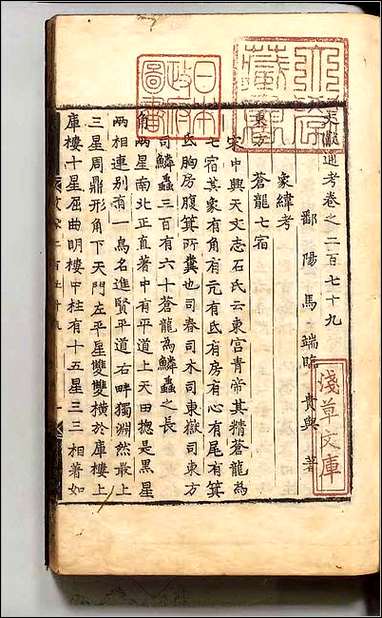 文獻通考卷之二百七十九
鄱陽馬端臨貴與著
象緯考
蒼龍七宿
東方
宋中興天文志石氏云東宮青帝其精蒼龍為
七宿其象有角有亢有氐有房有心有尾有箕
氐胸房腹箕所糞也司春司木司東嶽司東方
司鱗蟲三百有六十蒼龍為鱗蟲之長
角兩星南北正直著中有平道上天田揔是黑星
兩相連别有一烏名進賢平道右畔獨淵然最上
三星周鼎形角下天門左平星雙雙横於庫樓上
庫樓十星屈曲明樓中柱有十五星三三相著如
日本政府圖書
淺草文庫